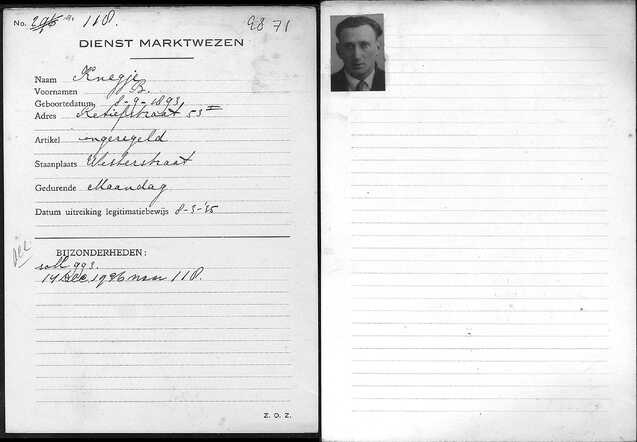 No. 296 118.
9871
DIENST MARKTWEZEN
Naam Knegje
Voornamen B.
Geboortedatum 8-9-1893
Adres Retiefstraat 53 II
Artikel ongeregeld
Staanplaats Westerstraat
Gedurende Maandag
Datum uitreiking legitimatiebewijs 8-3-35
BIJZONDERHEDEN:
14 Dec. 1936 no 118.
Z. O. Z.